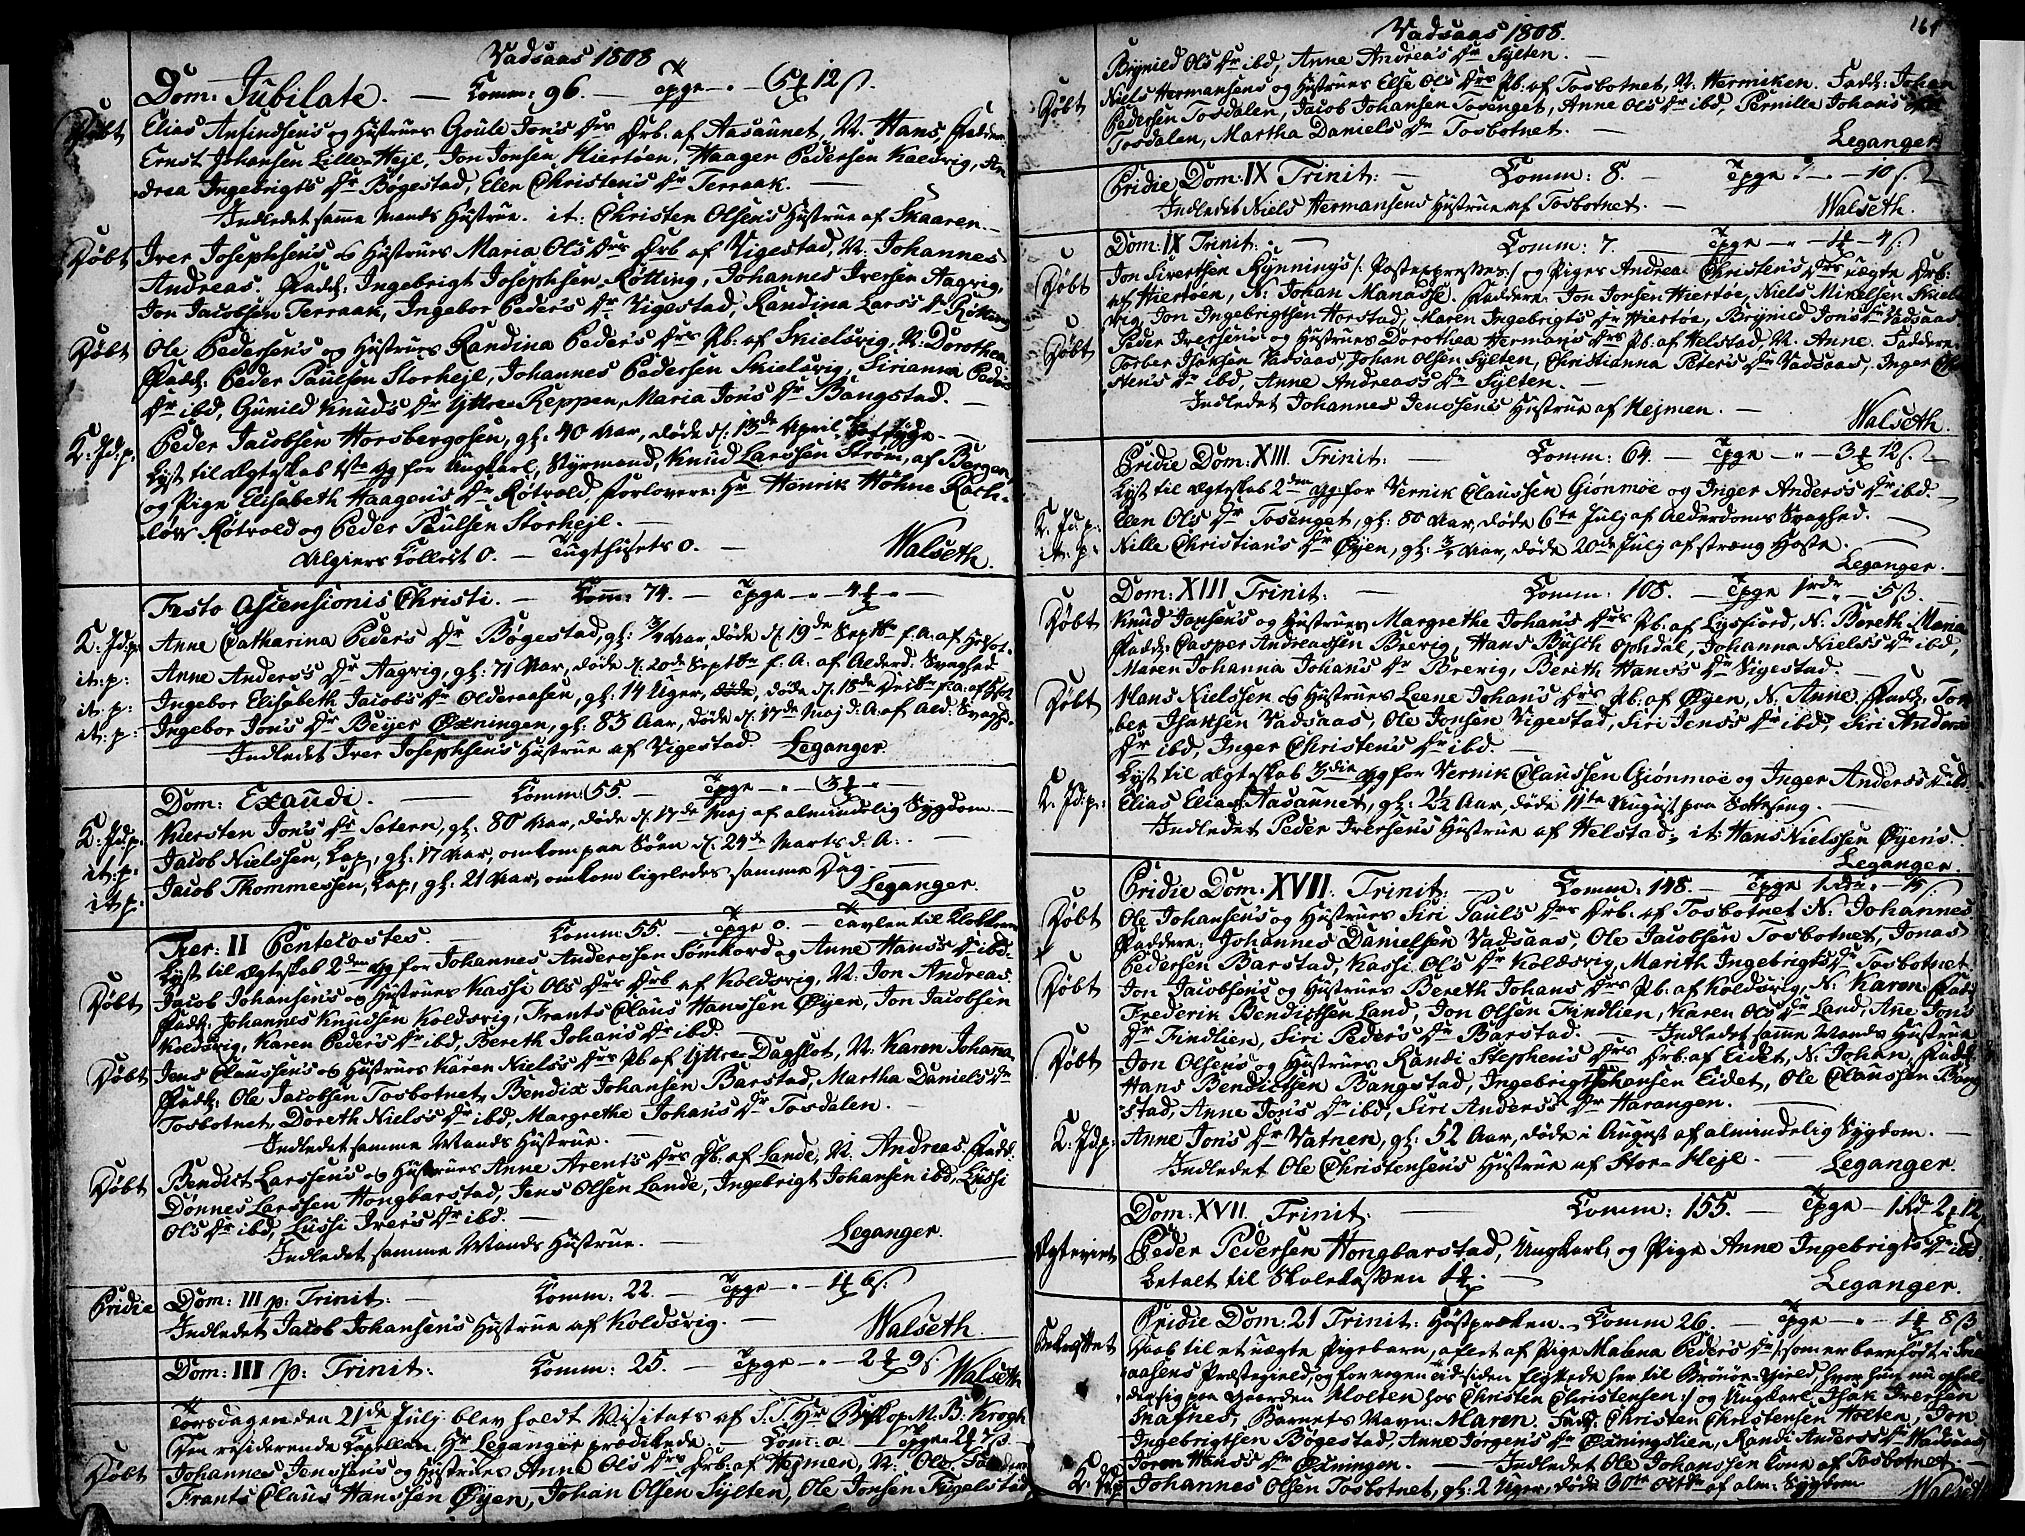 Vadsaas 1808
Dom: Jubilate. — Komm: 96. — Tpge — " — 5 ƶ 12 ß.
Døbt Elias Ansindsen's og Hustrues Goule Jon's Drs Drb. af Aasaunet, N. Hans, Faddere:
Ernst Johansen Lille-Hejl, Jon Jonsen Hiertøen, Haagen Pedersen Kaldvig, An
drea Ingebrigt's Dr Bøgestad, Elen Christen's Dr Terraak. —
Indledet samme Mands Hustrue. it: Christen Olsen's Hustrue af Skaaren. —
Døbt Iver Josephsen's og Hustrues Maria Ols Drs Drb af Vigestad, N. Johannes
Andreas. Fadd: Ingebrigt Josephsen Røtting, Johannes Iversen Aagvig,
Jon Jacobsen Terraak, Ingebor Peder's Dr Vigestad, Randina Lars's Dr
Døbt Ole Pedersen's og Hustrues Randina Peder's Drs Pb. af Skielsvig, N. Dorothea
Fadd: Peder Paulsen Storhejl, Johannes Pedersen Skielsvig, Sirianna Peder's
Dr ibd, Gunild Knuds Dr Yttre Reppen, Maria Jon's Dr Bangstad. —
K: Jd: p: Peder Jacobsen Horsbergosen, gl: 40 Aar, døde d: 13de April
Lyst til Ægteskab 1ste Gg for Ungkarl, Styrmand, Knud Larssen Strøm, af Bergen
og Pige Elisabeth Haagen's Dr Røtvold, Forlovere: Hr Henrik Höhne Rath-
løw Røtvold og Peder Paulsen Storhejl. —
Algiers Collect 0. — Tugthusets 0. — Walseth.
Festo Ascensionis Christi. — Komm: 74. — Tpge — " — 4 ƶ " —
K: Jd: p: Anne Catharina Peder's Dr Bøgestad, gl: ¾ Aar, døde d. 19de Septbr f. A. af
it: p: Anne Anders's Dr Aagvig, gl: 71 Aar, døde d: 20de Septbr f. A: af Alderd. Svaghed
it: p: Ingebor Elisabeth Jacob's Dr Olderaasen, gl: 14 Uger, døde, døde d. 18de
it: p: Ingebor Jon's Dr Bejer Øxningen, gl: 83 Aar, døde d. 17de Maj d. A. af Ald. Svagh.
Indledet Iver Josephsen's Hustrue af Vigestad. Leganger.
Dom: Exaudi. — Komm: 55 — Tpge — " — 3 ƶ " —
K: Jd: p: Kiersten Jon's Dr Setern, gl: 80 Aar, døde d. 17de Maj af almindelig Sygdom. —
it: p: Jacob Nielssen, Lap, gl: 17 Aar, omkom paa Søen d. 24de Marts d. A: —
it: p: Jacob Thommessen, Lap, gl: 21 Aar, omkom ligeledes samme Dag. — Leganger.
Fer: II Pentecostes. Komm: 55. — Tpge 0. — Tavlen til Klokkeren
Lyst til Ægteskab 2den Gg for Johannes Anderssen Sømhord og Anne Hans's Dr ibd.
Døbt Jacob Johansen's og Hustrues Kassi Ols Drs Drb af Koldsvig, N. Jon Andreas.
Fadd: Johannes Knudsen Koldsvig, Frants Claus Hanssen Øyen, Jon Jacobsen
Koldsvig, Karen Peders Dr ibd, Bereth Johan's Dr ibd.
Døbt Jens Claussen's og Hustrues Karen Niels's Drs Pb af Yttre Dagslot, N. Karen Johanna,
Fadd: Ole Jacobsen Tosbotnet, Bendix Johansen Barstad, Martha Daniels Dr
Tosbotnet, Doreth Niels's Dr ibd, Margrethe Johan's Dr Tosdalen. —
Indledet samme Mands Hustrue. —
Døbt Bendict Larssen's og Hustrues Anne Arent's Drs Pb. af Lande, N. Andreas. Fadd.
Dønnes Larssen Hongbarstad, Jens Olsen Lande, Ingebrigt Johansen ibd, Lussi
Ols Dr ibd, Lussi Iver's Dr ibd. —
Indledet samme Mands Hustrue. — Leganger.
Pridie Dom: III p: Trinit: — Komm: 22. — Tpge — " — 1 ƶ 6 ß.
Indledet Jacob Johansen's Hustrue af Koldsvig. — Walseth.
Dom: III p: Trinit: Komm: 25. — Tpge — " — 2 ƶ 9 ß. Walseth
Torsdagen den 21de Julj blev holdt Visitats af S. T. Hr Biskop M. B: Krogh
Den residerende Capellan Hr Leganger prædikede — Kom: 0
Døbt Johannes Jenssen's og Hustrues Anne Ols Drs Drb: af Hejmen, N: Ole, Faddere
Frants Claus Hanssen Øyen, Johan Olsen Sylten, Ole Jonsen Fugelstad
Vadsaas 1808. 161
Brynild Ols Dr ibd, Anne Andrea's Dr Sylten. —
Døbt Niels Hermansens og Hustrues Else Ols Drs Pb. af Tosbotnet, N. Hermiken. Fadd: Johan
Pedersen Tosdalen, Jacob Johansen Tosenget, Anne Ols Dr ibd, Pernille Johans Dr
Tosdalen, Martha Daniels Dr Tosbotnet. — Leganger.
Pridie Dom: IX Trinit: — Komm: 8. — Tpge — " — 10 ß.
Indledet Niels Hermansens Hustrue af Tosbotnet. — Walseth.
Dom: IX Trinit: — Komm: 7. — Tpge — " — 1 ƶ — 4 ß:
Døbt Jon Sivertsen Rynning's /: Postexpresses :/ og Piges Andrea Christen's Drs uægte Drb:
af Hiertøen, N: Johan Manasse. Faddere: Jon Jonsen Hiertøe, Niels Mikelsen Skiels
vig, Jon Ingebrigtsen Horstad, Maren Ingebrigts Dr Hiertøe, Brynild Jon's Dr Vadsaas.
Døbt Peder Iversens og Hustrues Dorothea Hermans Drs Pb. af Helstad, N. Anne. Faddere.
Torber Isaksen Vadsaas, Johan Olsen Sylten, Christianna Peter's Dr Vadsaas, Inger Chri
sten's Dr ibd, Anne Andreas's Dr Sylten. —
Indledet Johannes Jenssen's Hustrue af Hejmen. — Walseth.
Pridie Dom: XIII Trinit: — Komm: 64. — Tpge — " — 3 ƶ 12 ß —
Lyst til Ægteskab 2den Gg for Vernik Claussen Giønmøe og Inger Anders's Dr ibd. —
K: Jd: p: Elen Ols Dr Tosenget, gl: 80 Aar, døde 6te Julj af Alderdoms Svaghed. —
it: p: Nille Christian's Dr Øyen, gl: ¾ Aar, døde 20de Julj af stræng Hoste. — Leganger.
Dom: XIII Trinit: — Komm: 108. — Tpge 1 rdr " — 5 ß. —
Døbt Knud Jansen's og Hustrues Margrethe Johan's Drs Pb. af Lysfiord, N. Bereth Maria
Fadd: Casper Andreassen Brevig, Hans Busch Ophdal, Johanna Niels's Dr ibd,
Maren Johanna Johan's Dr Brevig, Bereth Hans's Dr Vigestad. —
Døbt Hans Nielssen og Hustrues Leene Johan's Drs Pb. af Øyen, N. Anne. Fadd: Tor
ber Isaksen Vadsaas, Ole Jonsen Vigestad, Siri Jens's Dr ibd, Siri Anders's
Dr ibd, Inger Christen's Dr ibd. —
Lyst til Ægteskab 3die Gg for Vernik Claussen Giønmoe og Inger Anders's Dr ibd.
K: Jd: p: Elias Elias Aasaunet, gl: 2½ Aar, døde 11te August paa Sotteseng. —
Indledet Peder Iversen's Hustrue af Helstad, it: Hans Nielssen Øyen's.
Leganger.
Pridie Dom: XVII. Trinit: — Komm: 148. — Tpge 1 Rdr " — 15 ß.
Døbt Ole Johansen's og Hustrues Siri Pauls Drs Drb. af Tosbotnet N: Johannes
Faddere: Johannes Danielsen Vadsaas, Ole Jacobsen Tosbotnet, Jonas
Pedersen Barstad, Kassi Ols Dr Koldsvig, Marith Ingebrigts Dr Tosbotnet
Døbt Jon Jacobsens og Hustrues Bereth Johans Drs Pb. af Koldsvig, N: Karen Fadd:
Frederik Bendictsen Land, Jon Olsen Findlien, Karen Ols Dr Land, Ane Jon's
Dr Findlien, Siri Peder's Dr Barstad. — Indledet samme Mands Hustrue
Døbt Jon Olsen's og Hustrues Randi Stephen's Drs Drb: af Eidet, N. Johan, Fadd:
Hans Bendictsen Bangstad, Ingebrigt Johansen Eidet, Ole Claussen Bang
stad, Anne Jon's Dr ibd, Siri Anders's Dr Harangen. —
K: Jd: p: Anne Jon's Dr Vatnen, gl: 52 Aar, døde i August af almindelig Sygdom. —
Indledet Ole Christensen's Hustrue af Stor-Hejl. — Leganger.
Dom: XVII. Trinit: Komm: 155. — Tpge — 1 Rd 2 ƶ 12
Ægteviet Peder Pedersen Hongbarstad, Ungkarl, og Pige Anne Ingebrigts Dr ibd
betalt til Skolekassen 1 ƶ. — Leganger.
Pridie Dom: 21 Trinit: Høstprøken. Komm 26. — Tpge — " — 1 ƶ 8 ß
Bekræftet Daab til et uægte Pigebarn, aflet af Pige Malena Peder's Dr /: som er barnfødt i
aasens Præstegield, og for nogen Tid siden flyttede her til Brønøe-Gield, hvor hun nu ophol
der sig paa Gaarden Holten hos Christen Christensen :/ og Ungkarl Isak Iversen
Skafnes, Barnets Navn: Maren. Fadd: Christen Christensen Holten, Jon
Ingebrigtsen Bøgestad, Anne Jørgen's Dr Øxningslien, Randi Anders's Dr Wadsaas,
Joren Hans's Dr Øxningen. — Indledet Ole Johanssen Kone af Tosbotnet. —
K: Jd: p Johannes Olsen Tosbotnet, gl: 2 Uger, døde 30te Octbr af alm: Sygdom Walseth